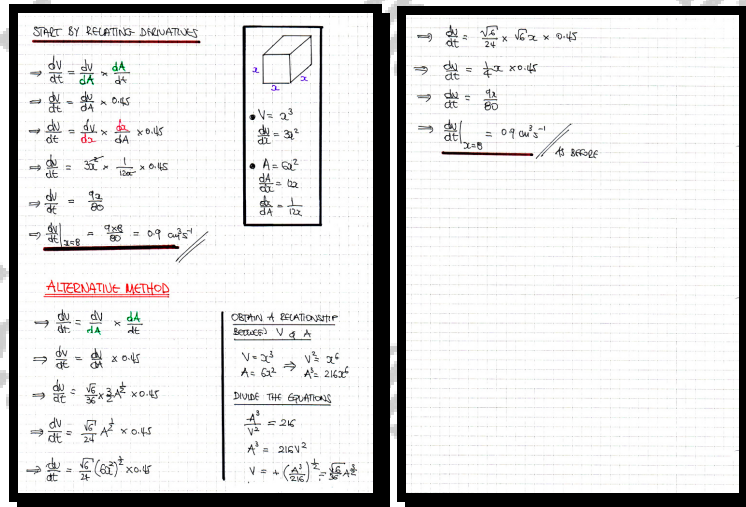 START BY RELATING DERIVATIVES
⇒ dV/dt = dV/dA × dA/dt
⇒ dV/dt = dV/dA × 0.45
⇒ dV/dt = dV/dx × dx/dA × 0.45
⇒ dV/dt = 3x² × 1/12x × 0.45
⇒ dV/dt = 9x/80
⇒ dV/dt|x=8 = 9×8/80 = 0.9 cm³s⁻¹
x
x
x
• V = x³
dV/dx = 3x²
• A = 6x²
dA/dx = 12x
dx/dA = 1/12x
ALTERNATIVE METHOD
⇒ dV/dt = dV/dA × dA/dt
⇒ dV/dt = dV/dA × 0.45
⇒ dV/dt = √6/36 × 3/2 A^½ × 0.45
⇒ dV/dt = √6/24 A^½ × 0.45
⇒ dV/dt = √6/24 (6x²)^½ × 0.45
OBTAIN A RELATIONSHIP
BETWEEN V & A
V = x³ ⇒ V² = x⁶
A = 6x² A³ = 216x⁶
DIVIDE THE EQUATIONS
A³/V² = 216
A³ = 216V²
V = + (A³/216)^½ = √6/36 A^3/2
⇒ dV/dt = √6/24 × √6 x × 0.45
⇒ dV/dt = 1/4 x × 0.45
⇒ dV/dt = 9x/80
⇒ dV/dt|x=8 = 0.9 cm³s⁻¹
AS BEFORE